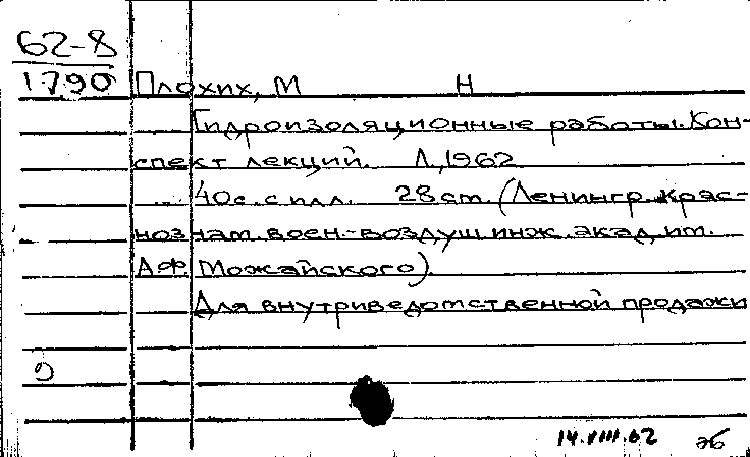 62-8
1790
Плохих, М Н
Гидроизоляционные работы. Кон-
спект лекций. Л, 1962
40с. с илл. 28 cm. (Ленингр. Крас-
нознам. воен.-воздуш инж. акад им.
А.Ф. Можайского).
Для внутриведомственной продажи
14.VIII.62 эб